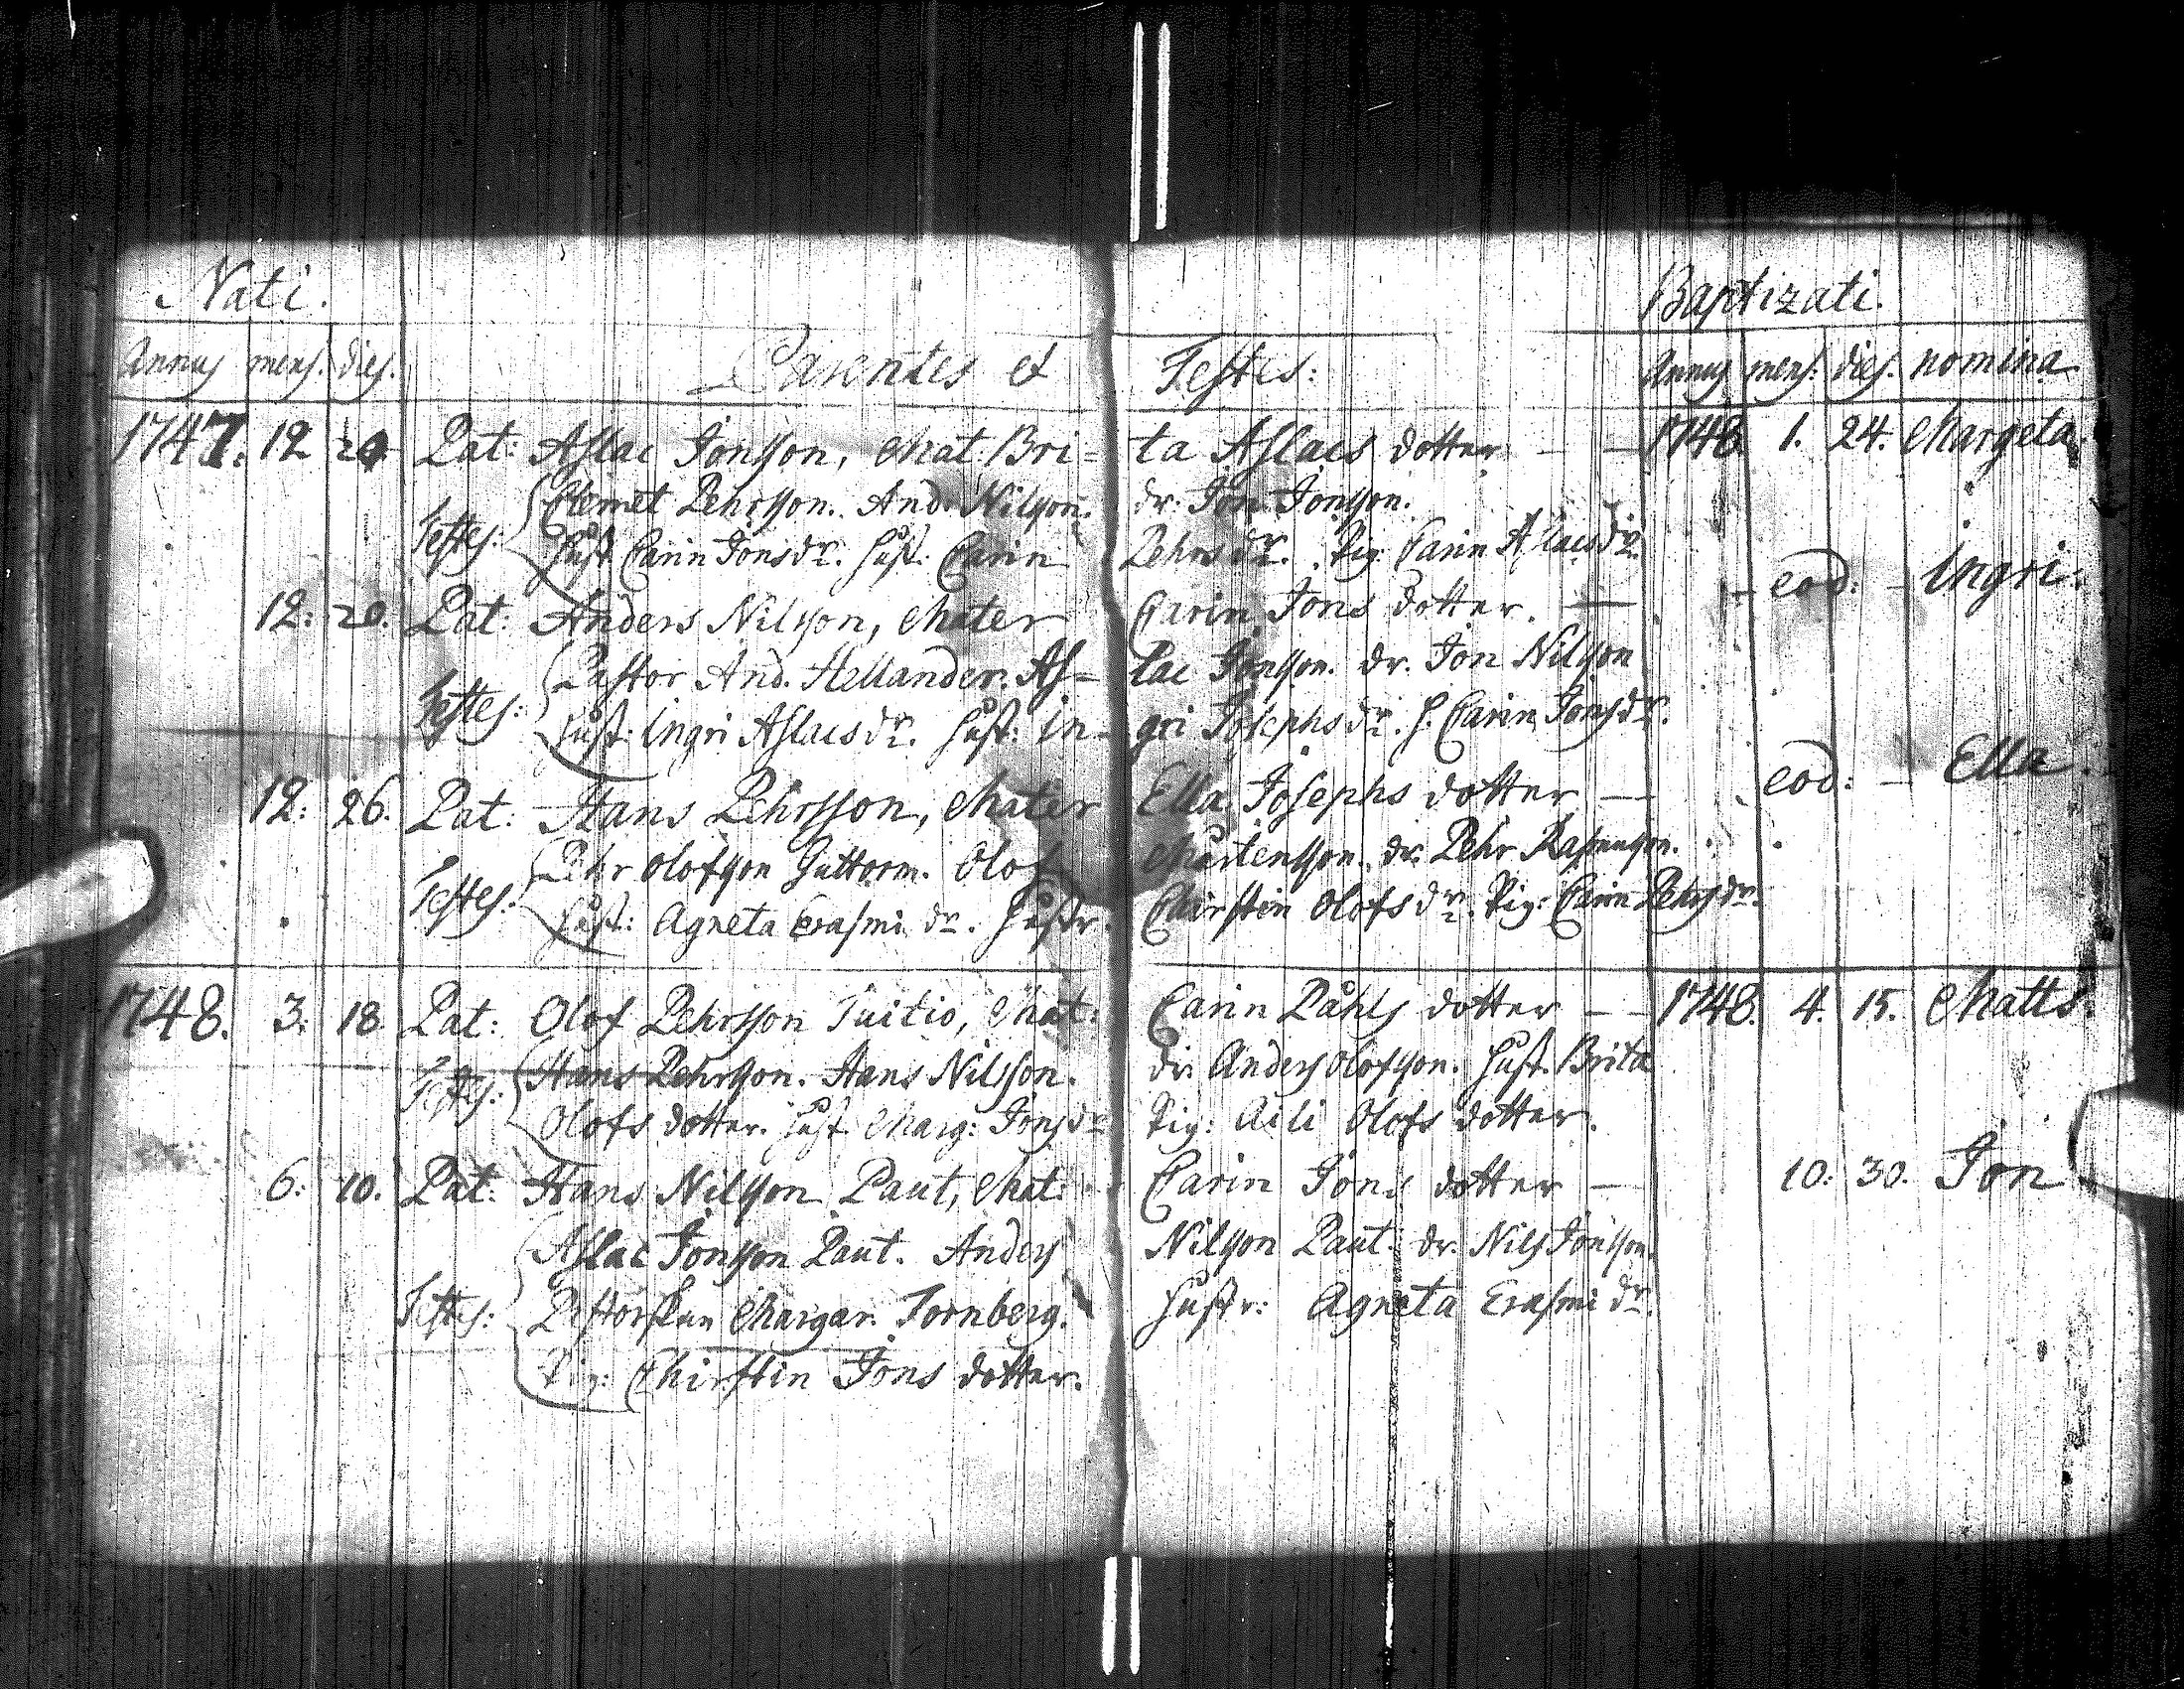 Nati. Baptizati.
Annus mens: dies. Parentes et Testes: Annus mens: dies. nomina
1747. 12 20 Pat: Aslac Jonsson, Mat: Bri= ta Aslacs dotter — — 1748. 1. 24. Margeta
Testes: Clemet Pehrsson. And: Nilsson. dr: Jon Jonsson.
Hust Carin Jons dr. Hust: Carin Pehrs dr. Pig: Carin Aslacs dr.
12: 20. Pat: Anders Nilsson, Mater Carin Jons dotter. — – eod: – Ingri.
Testes: Pastor And. Hellander. As= lac Jonsson. dr. Jon Nilsson
Hust: Ingri Aslacs dr. Hust: In- gri Josephs dr. H. Carin Jons dr.
12: 26. Pat: Hans Pehrsson, Mater Ella Josephs dotter — eod: – Ella.
Testes: Pehr Olofsson Guttorm. Olof Mårtensson. dr. Pehr
Hust: Agneta Erasmi dr. Hustr. Chirstin Olofs dr. Pig: Carin Pehrs dr.
1748. 3. 18 Pat: Olof Pehrsson Suitio, Mat: Carin Påhls dotter – – 1748. 4. 15. Matts.
Testes: Hans Pehrsson. Hans Nilsson. dr. Anders Olofsson. Hust. Brita
Olofs dotter. Hust. Marg: Jons dr Pig: Aili Olofs dotter.
6: 10. Pat: Hans Nilsson Paut, Mat: Carin Jons dotter — 10: 30. Jon
Aslac Jonsson Paut. Anders Nilsson Paut. dr. Nils Jonsson.
Testes: Pastorskan Margar. Tornberg. Hustr: Agneta Erasmi dr.
Pig: Chirstin Jons dotter.